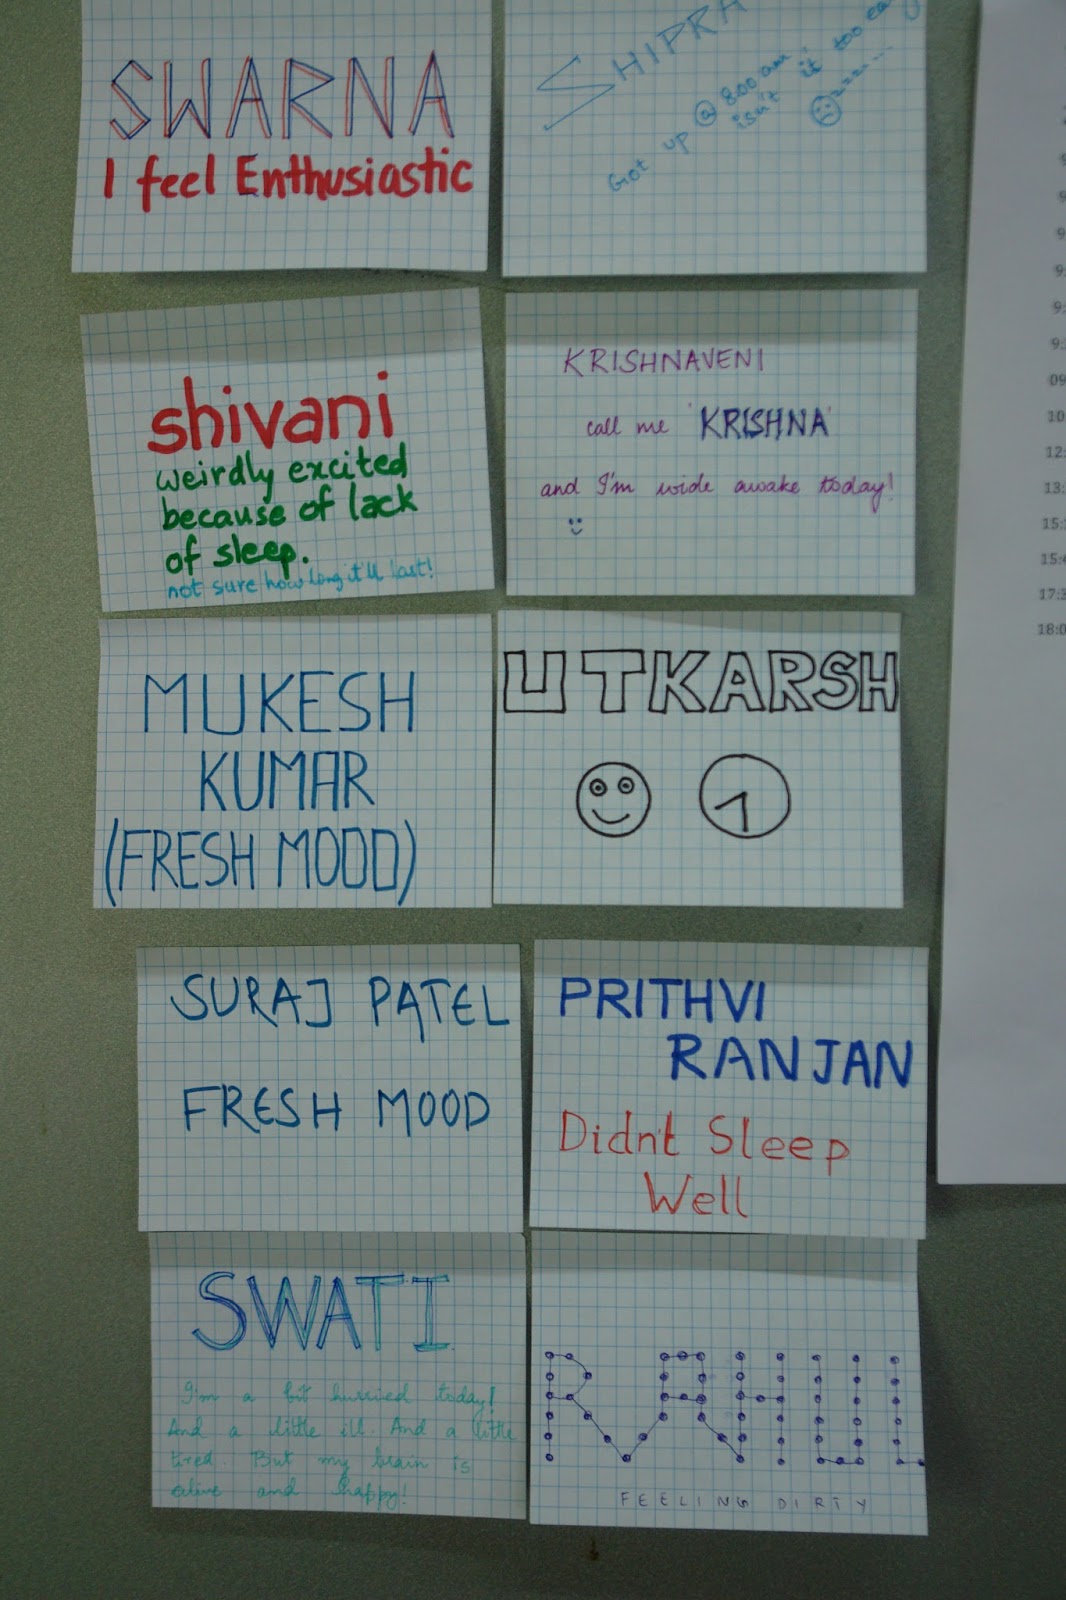 SWARNA
I feel Enthusiastic
SHIPRA
Got up @ 8:00 am..
isn't it too
zzzz...
shivani
weirdly excited
because of lack
of sleep.
not sure how long it'll last!
KRISHNAVENI
call me 'KRISHNA'
and I'm wide awake today!
MUKESH
KUMAR
(FRESH MOOD)
UTKARSH
SURAJ PATEL
FRESH MOOD
PRITHVI
RANJAN
Didn't Sleep
Well
SWATI
I'm a bit hurried today!
And a little ill. And a little
tired. But my brain is
alive and happy!
RAHUL
FEELING DIRTY
09
10
12:
13:
15:
15:4
17:3
18:0